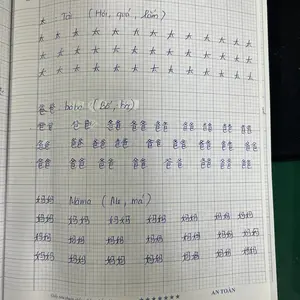 太 Tài (Hơi, quá, lắm)
太 太 太 太 太 太 太 太 太 太 太 太 太 太
太 太 太 太 太 太 太 太 太 太 太 太 太 太
太 太 太 太 太 太 太 太 太 太 太 太 太 太
爸爸 bàba (Bố, ba)
爸爸 爸爸 爸爸 爸爸 爸爸 爸爸 爸爸 爸爸
爸爸 爸爸 爸爸 爸爸 爸爸 爸爸 爸爸 爸爸
爸爸 爸爸 爸爸 爸爸 爸爸 爸爸 爸爸 爸爸
妈妈 Māma (Mẹ, má)
妈妈 妈妈 妈妈 妈妈 妈妈 妈妈 妈妈
妈妈 妈妈 妈妈 妈妈 妈妈 妈妈 妈妈
妈妈 妈妈 妈妈 妈妈 妈妈 妈妈 妈妈
AN TOÀN